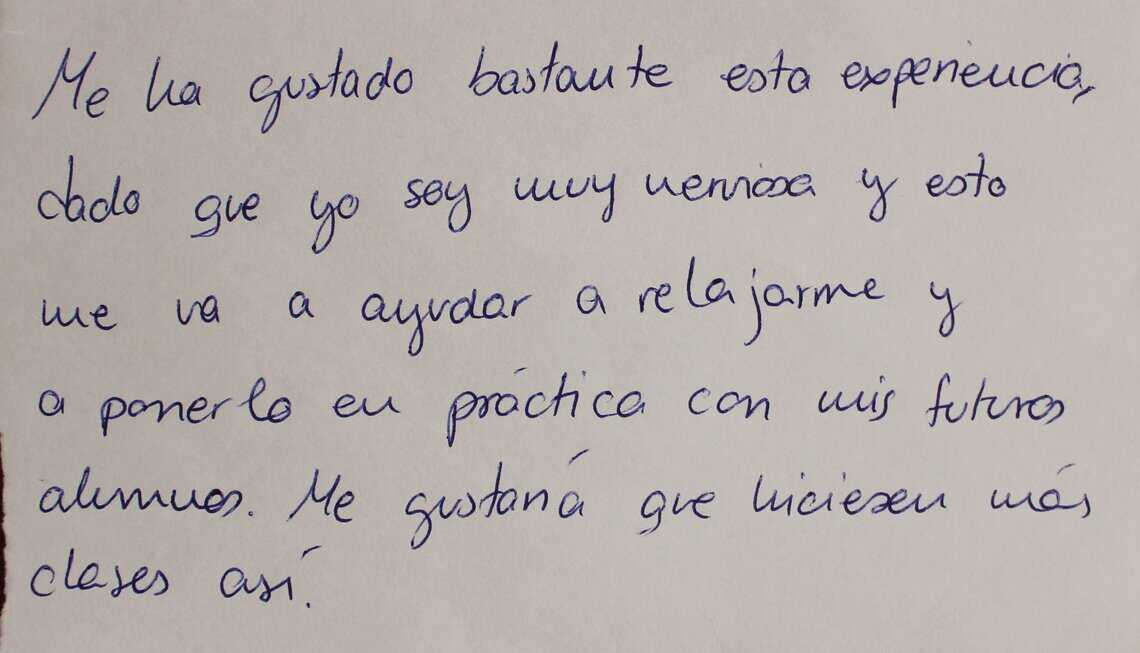 Me ha gustado bastante esta experiencia,
dado que yo soy muy nerviosa y esto
me va a ayudar a relajarme y
a ponerlo en práctica con mis futuros
alumnos. Me gustaría que hiciesen más
clases así.